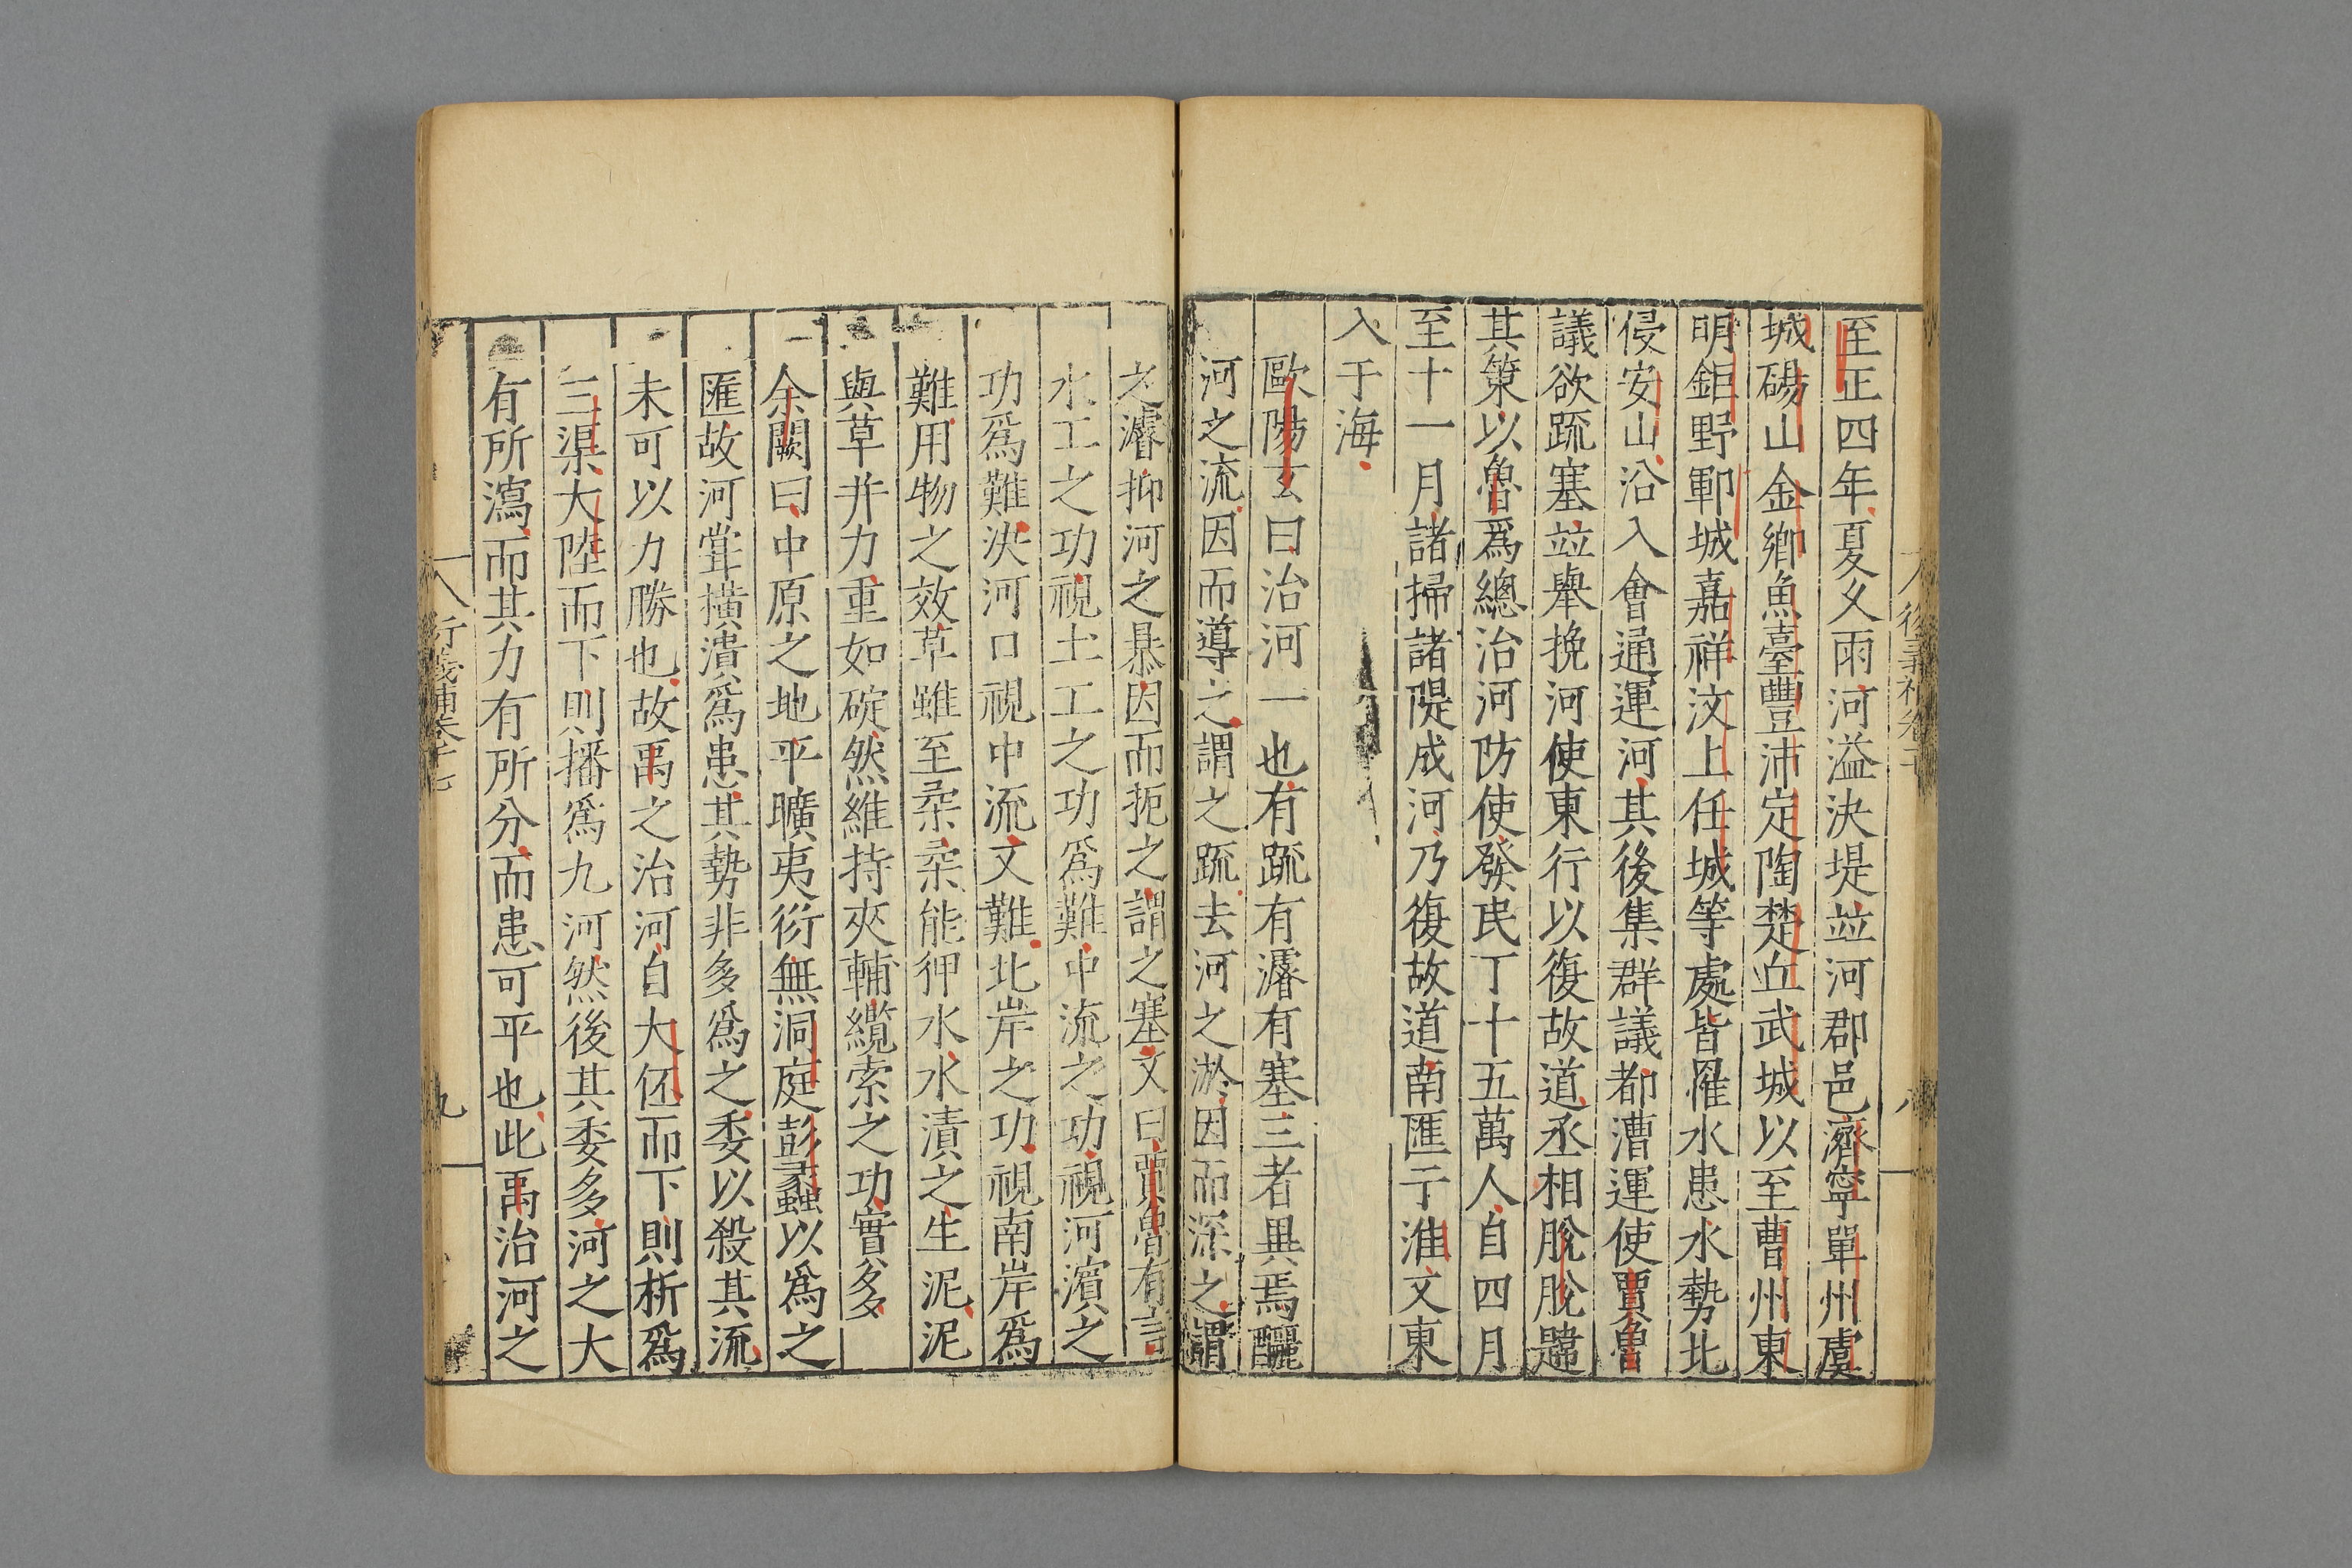 至正四年夏久雨河溢決堤並河郡邑濟寧單州虞
城碭山金鄉魚臺豐沛定陶楚丘武城以至曹州東
明鉅野鄆城嘉祥汶上任城等處皆罹水患水勢北
侵安山沿入會通運河其後集群議都漕運使賈魯
議欲疏塞並舉挽河使東行以復故道丞相脫脫韙
其策以魯爲總治河防使發民丁十五萬人自四月
至十一月諸掃諸隄成河乃復故道南匯于淮又東
入于海
歐陽玄曰治河一也有疏有濬有塞三者異焉釃
河之流因而導之謂之疏去河之淤因而深之謂
之濬抑河之暴因而扼之謂之塞又曰賈魯有言
水工之功視土工之功爲難中流之功視河濱之
功爲難決河口視中流又難北岸之功視南岸爲
難用物之效草雖至柔柔能狎水水漬之生泥泥
與草并力重如碇然維持夾輔纜索之功實多
余闕曰中原之地平曠夷衍無洞庭彭蠡以爲之
匯故河甞橫潰爲患其勢非多爲之委以殺其流
未可以力勝也故禹之治河自大伾而下則析爲
三渠大陸而下則播爲九河然後其委多河之大
有所瀉而其力有所分而患可平也此禹治河之
九